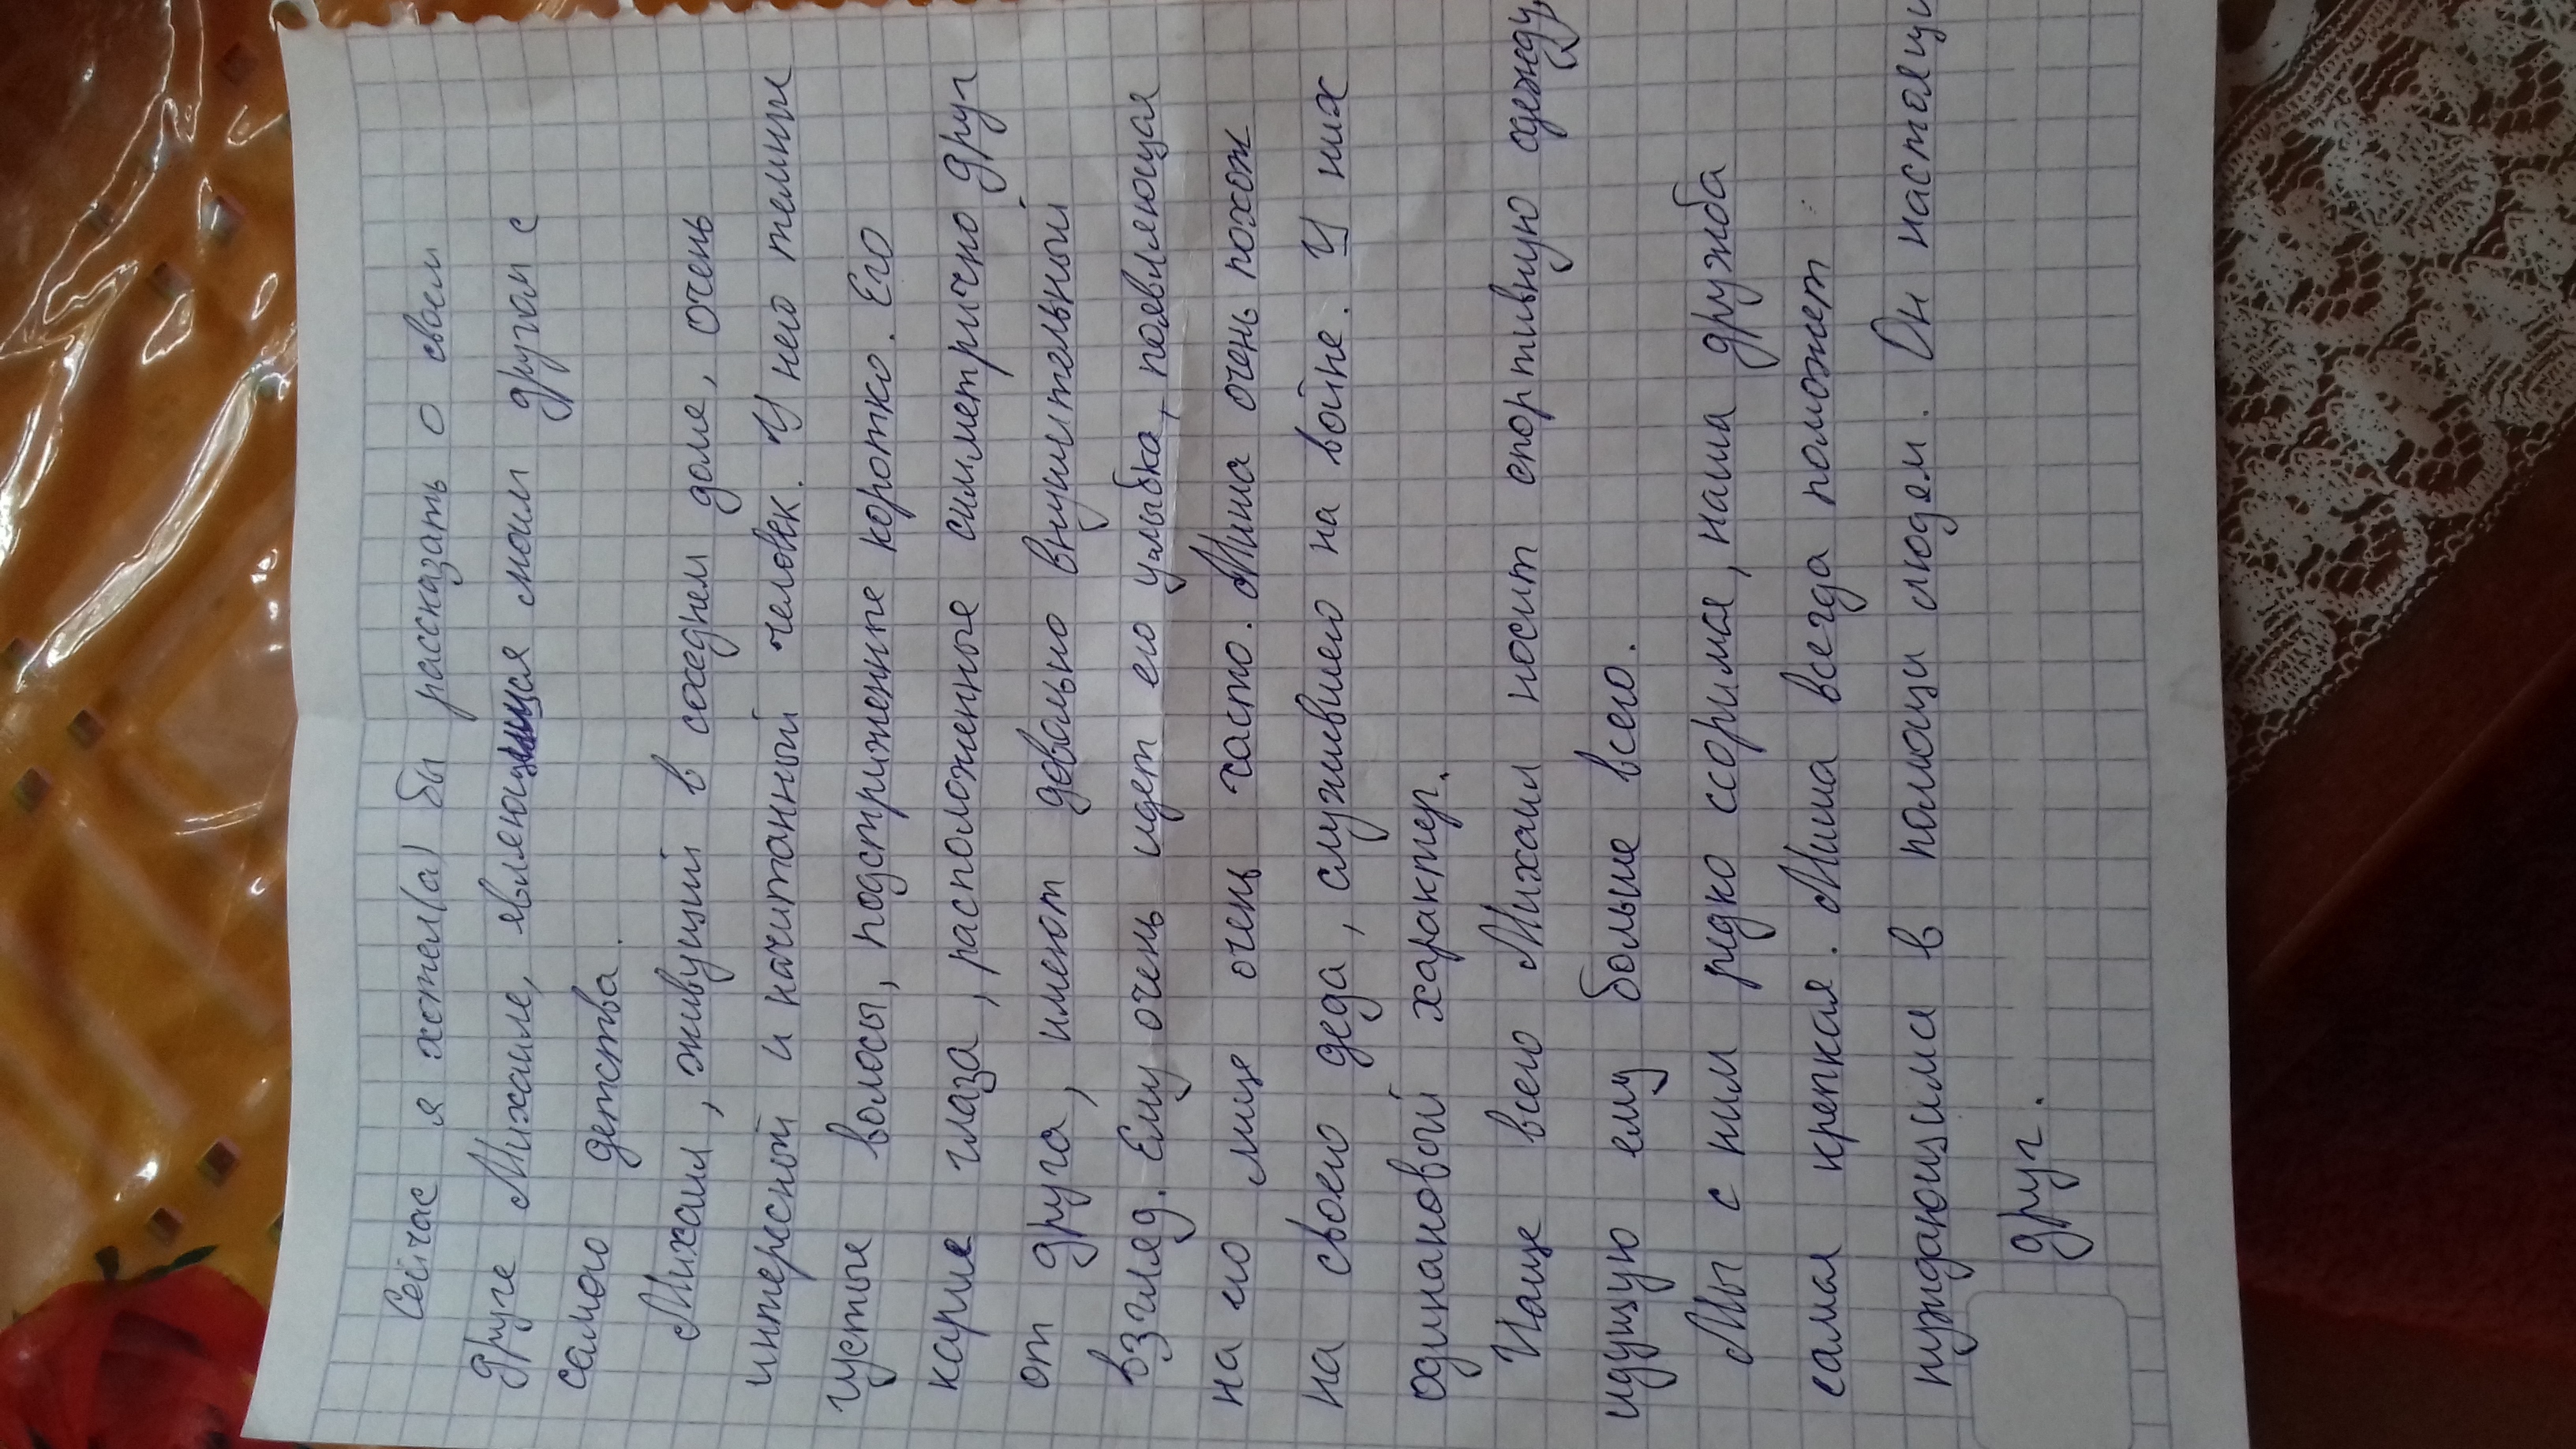 Сейчас я хотел(а) бы рассказать о своем
друге Михаиле, являющимся моим другом с
самого детства.
Михаил, живущий в соседнем доме, очень
интересный и начитанный человек. У него темные
густые волосы, подстриженные коротко. Его
карие глаза, расположенные симметрично друг
от друга, имеют довольно внушительный
взгляд. Ему очень идет его улыбка, появляющая
на его лице очень часто. Миша очень похож
на своего деда, служившего на войне. У них
одинаковый характер.
Чаще всего Михаил носит спортивную одежду,
идущую ему больше всего.
Мы с ним редко ссоримся, наша дружба
самая крепкая. Миша всегда поможет
нуждающимся в помощи людям. Он
друг.